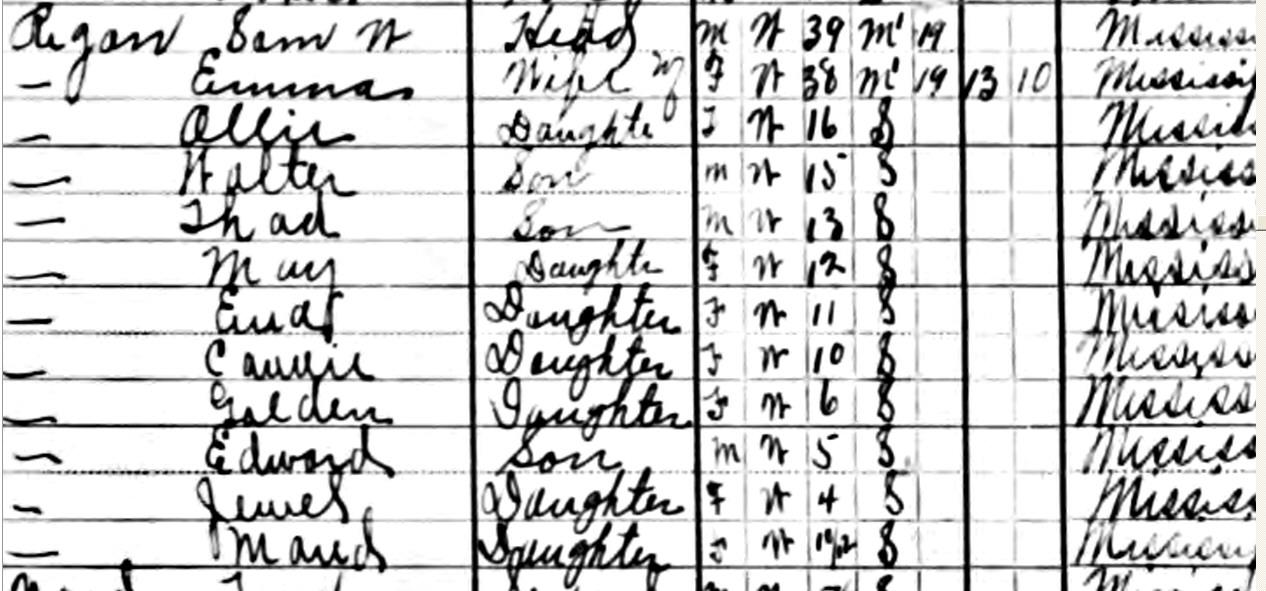 Regan Sam W Head M W 39 M1 19 Mississi
— Emma Wife F W 38 M1 19 13 10 Mississip
— Ollie Daughte F W 16 S Mississi
— Walter Son M W 15 S Mississi
— Thad Son M W 13 S Mississi
— May Daughte F W 12 S Mississi
— Daughter F W 11 S Mississi
— Daughter F W 10 S Mississi
— Golden Daughter F W 6 S Mississi
— Edward Son M W 5 S Mississi
— Jewel Daughter F W 4 S Mississi
— Maud Daughter F W 10/12 S Mississi